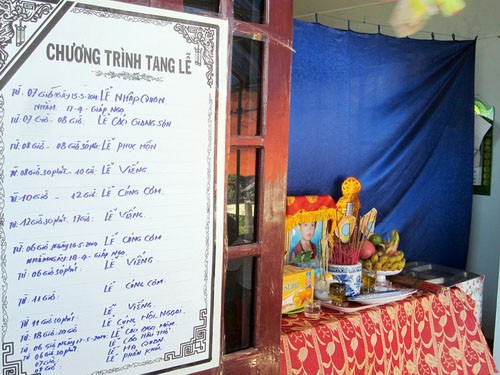 CHƯƠNG TRÌNH TANG LỄ
TỪ: 07 GIỜ NGÀY 15-5-2014 LỄ NHẬP QUAN
NHẰM: 17-4- GIÁP NGỌ
TỪ 07 GIỜ - 08 GIỜ LỄ CÁO GIANG SƠN
TỪ 08 GIỜ - 08 GIỜ 30 PHÚT LỄ PHỤC HỒN
TỪ 08 GIỜ 30 PHÚT - 10 GIỜ LỄ VIẾNG
TỪ 10 GIỜ - 12 GIỜ LỄ CÚNG CƠM.
TỪ: 12 GIỜ 30 PHÚT - 17 GIỜ: LỄ VIẾNG.
TỪ: 06 GIỜ NGÀY 16-5-2014 LỄ CÚNG CƠM
NHẰM NGÀY 18-4- GIÁP NGỌ
TỪ 06 GIỜ 30 PHÚT: LỄ VIẾNG
TỪ: 11 GIỜ: LỄ CÚNG CƠM.
LỄ VIẾNG.
TỪ 11 GIỜ LỄ CÚNG NỘI NGOẠI.
TỪ 18 GIỜ
TỪ 06 GIỜ NGÀY 17-5-2014
TỪ 06 GIỜ 30 PHÚT: LỄ HẠ QUAN
07 GIỜ: